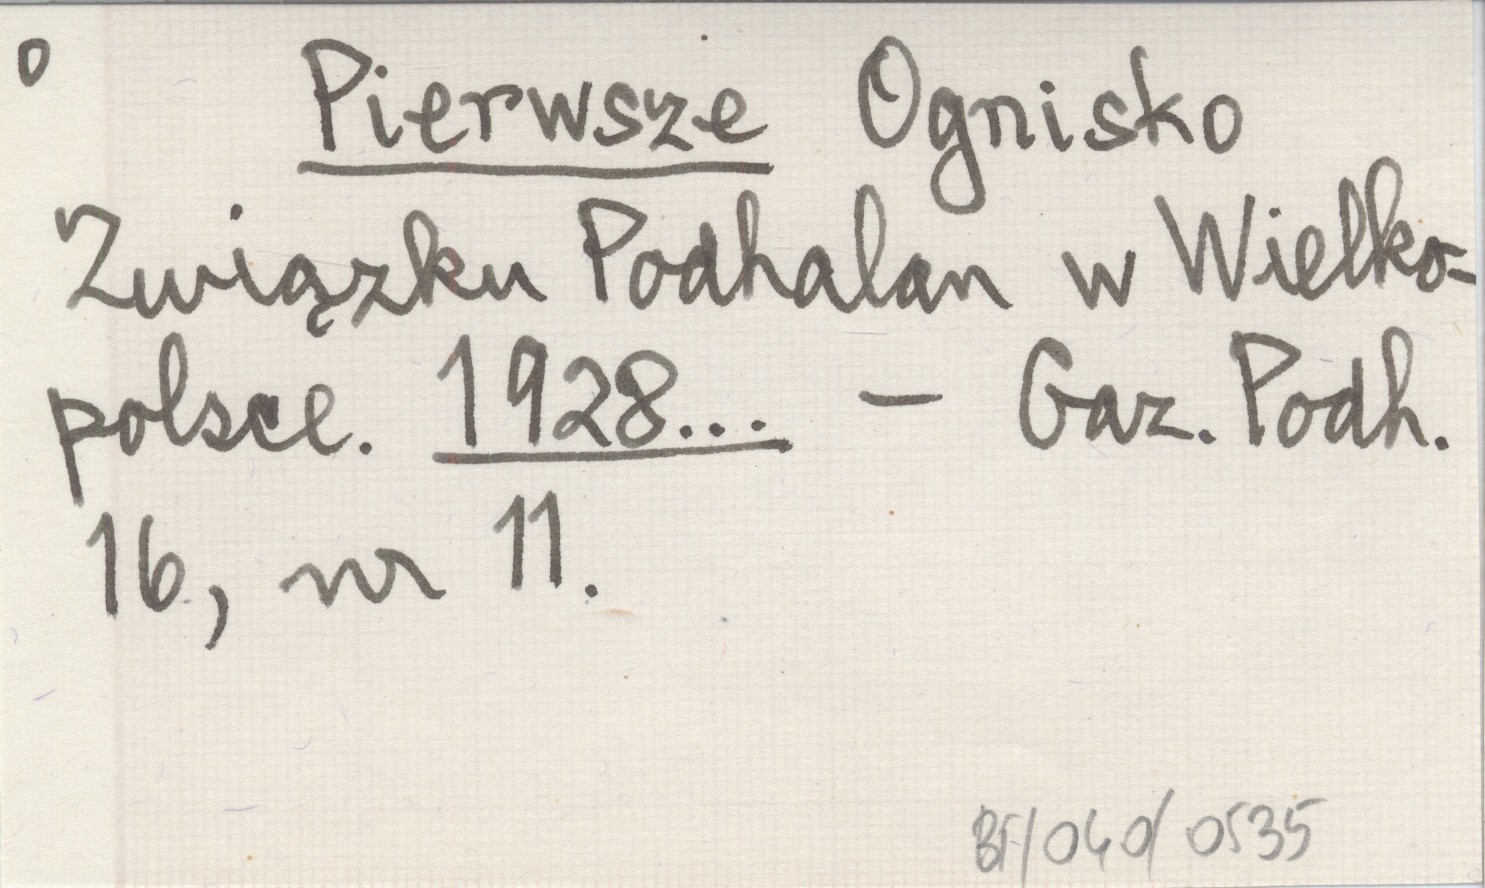 o Pierwsze Ognisko
Związku Podhalan w Wielko=
polsce. 1928... – Gaz. Podh.
16, nr 11.
BF/040/0535